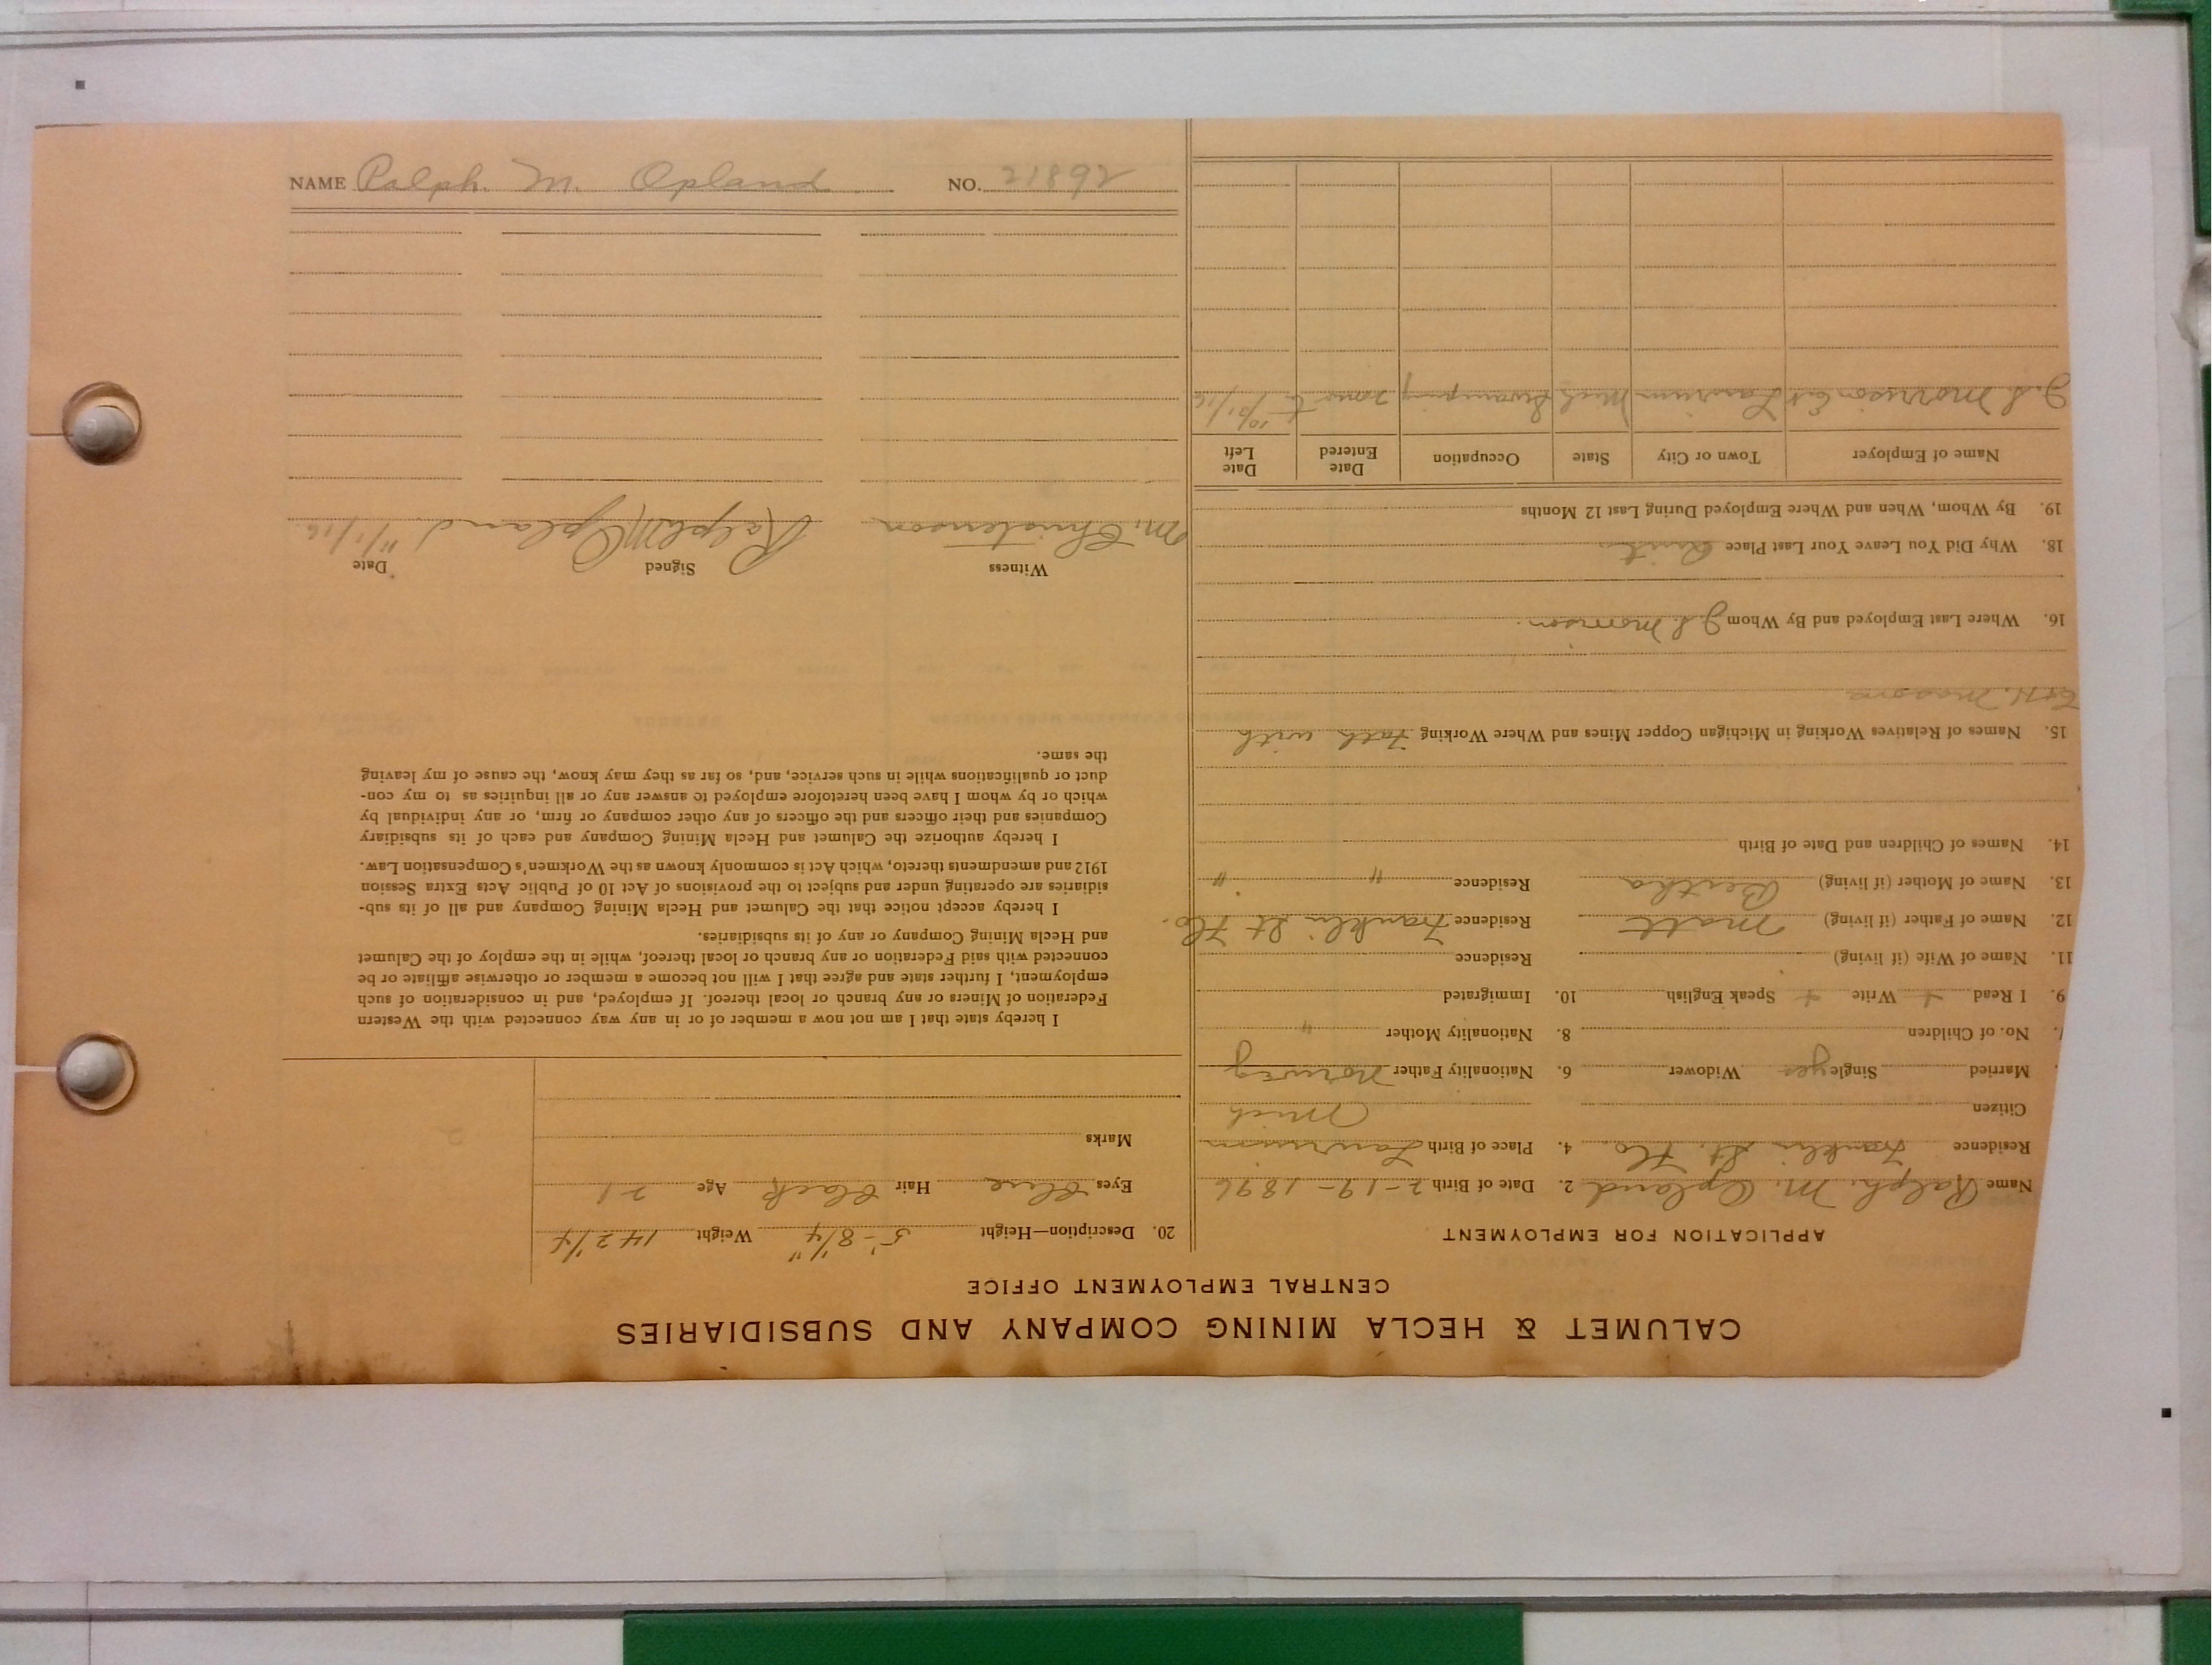 NAME Ralph. M. Opland NO. 21892
CALUMET & HECLA MINING COMPANY AND SUBSIDIARIES
CENTRAL EMPLOYMENT OFFICE
APPLICATION FOR EMPLOYMENT
Name Ralph. M. Opland 2. Date of Birth 2-19-1896
Residence Franklin St. Flo. 4. Place of Birth Laurium
Citizen Mich
Married Single yes Widower 6. Nationality Father Norweg
No. of Children 8. Nationality Mother "
9. I Read + Write + Speak English 10. Immigrated
11. Name of Wife (if living) Residence
12. Name of Father (if living) Matt Residence Franklin St Flo.
13. Name of Mother (if living) Bertha Residence " "
14. Names of Children and Date of Birth
15. Names of Relatives Working in Michigan Copper Mines and Where Working Fath with
Moore
16. Where Last Employed and By Whom J. S. Morrison.
18. Why Did You Leave Your Last Place Quit
19. By Whom, When and Where Employed During Last 12 Months
Name of Employer Town or City State Occupation Date Entered Date Left
J. S. Morrison Laurium Mich Swamping 10/31/16
20. Description—Height 5'-8 1/4" Weight 142 1/4
Eyes Blue Hair Black Age 21
Marks
I hereby state that I am not now a member of or in any way connected with the Western
Federation of Miners or any branch or local thereof. If employed, and in consideration of such
employment, I further state and agree that I will not become a member or otherwise affiliate or be
connected with said Federation or any branch or local thereof, while in the employ of the Calumet
and Hecla Mining Company or any of its subsidiaries.
I hereby accept notice that the Calumet and Hecla Mining Company and all of its sub-
sidiaries are operating under and subject to the provisions of Act 10 of Public Acts Extra Session
1912 and amendments thereto, which Act is commonly known as the Workmen's Compensation Law.
I hereby authorize the Calumet and Hecla Mining Company and each of its subsidiary
Companies and their officers and the officers of any other company or firm, or any individual by
which or by whom I have been heretofore employed to answer any or all inquiries as to my con-
duct or qualifications while in such service, and, so far as they may know, the cause of my leaving
the same.
Witness Signed Date
M. Christenson Ralph M Opland 11/1/16